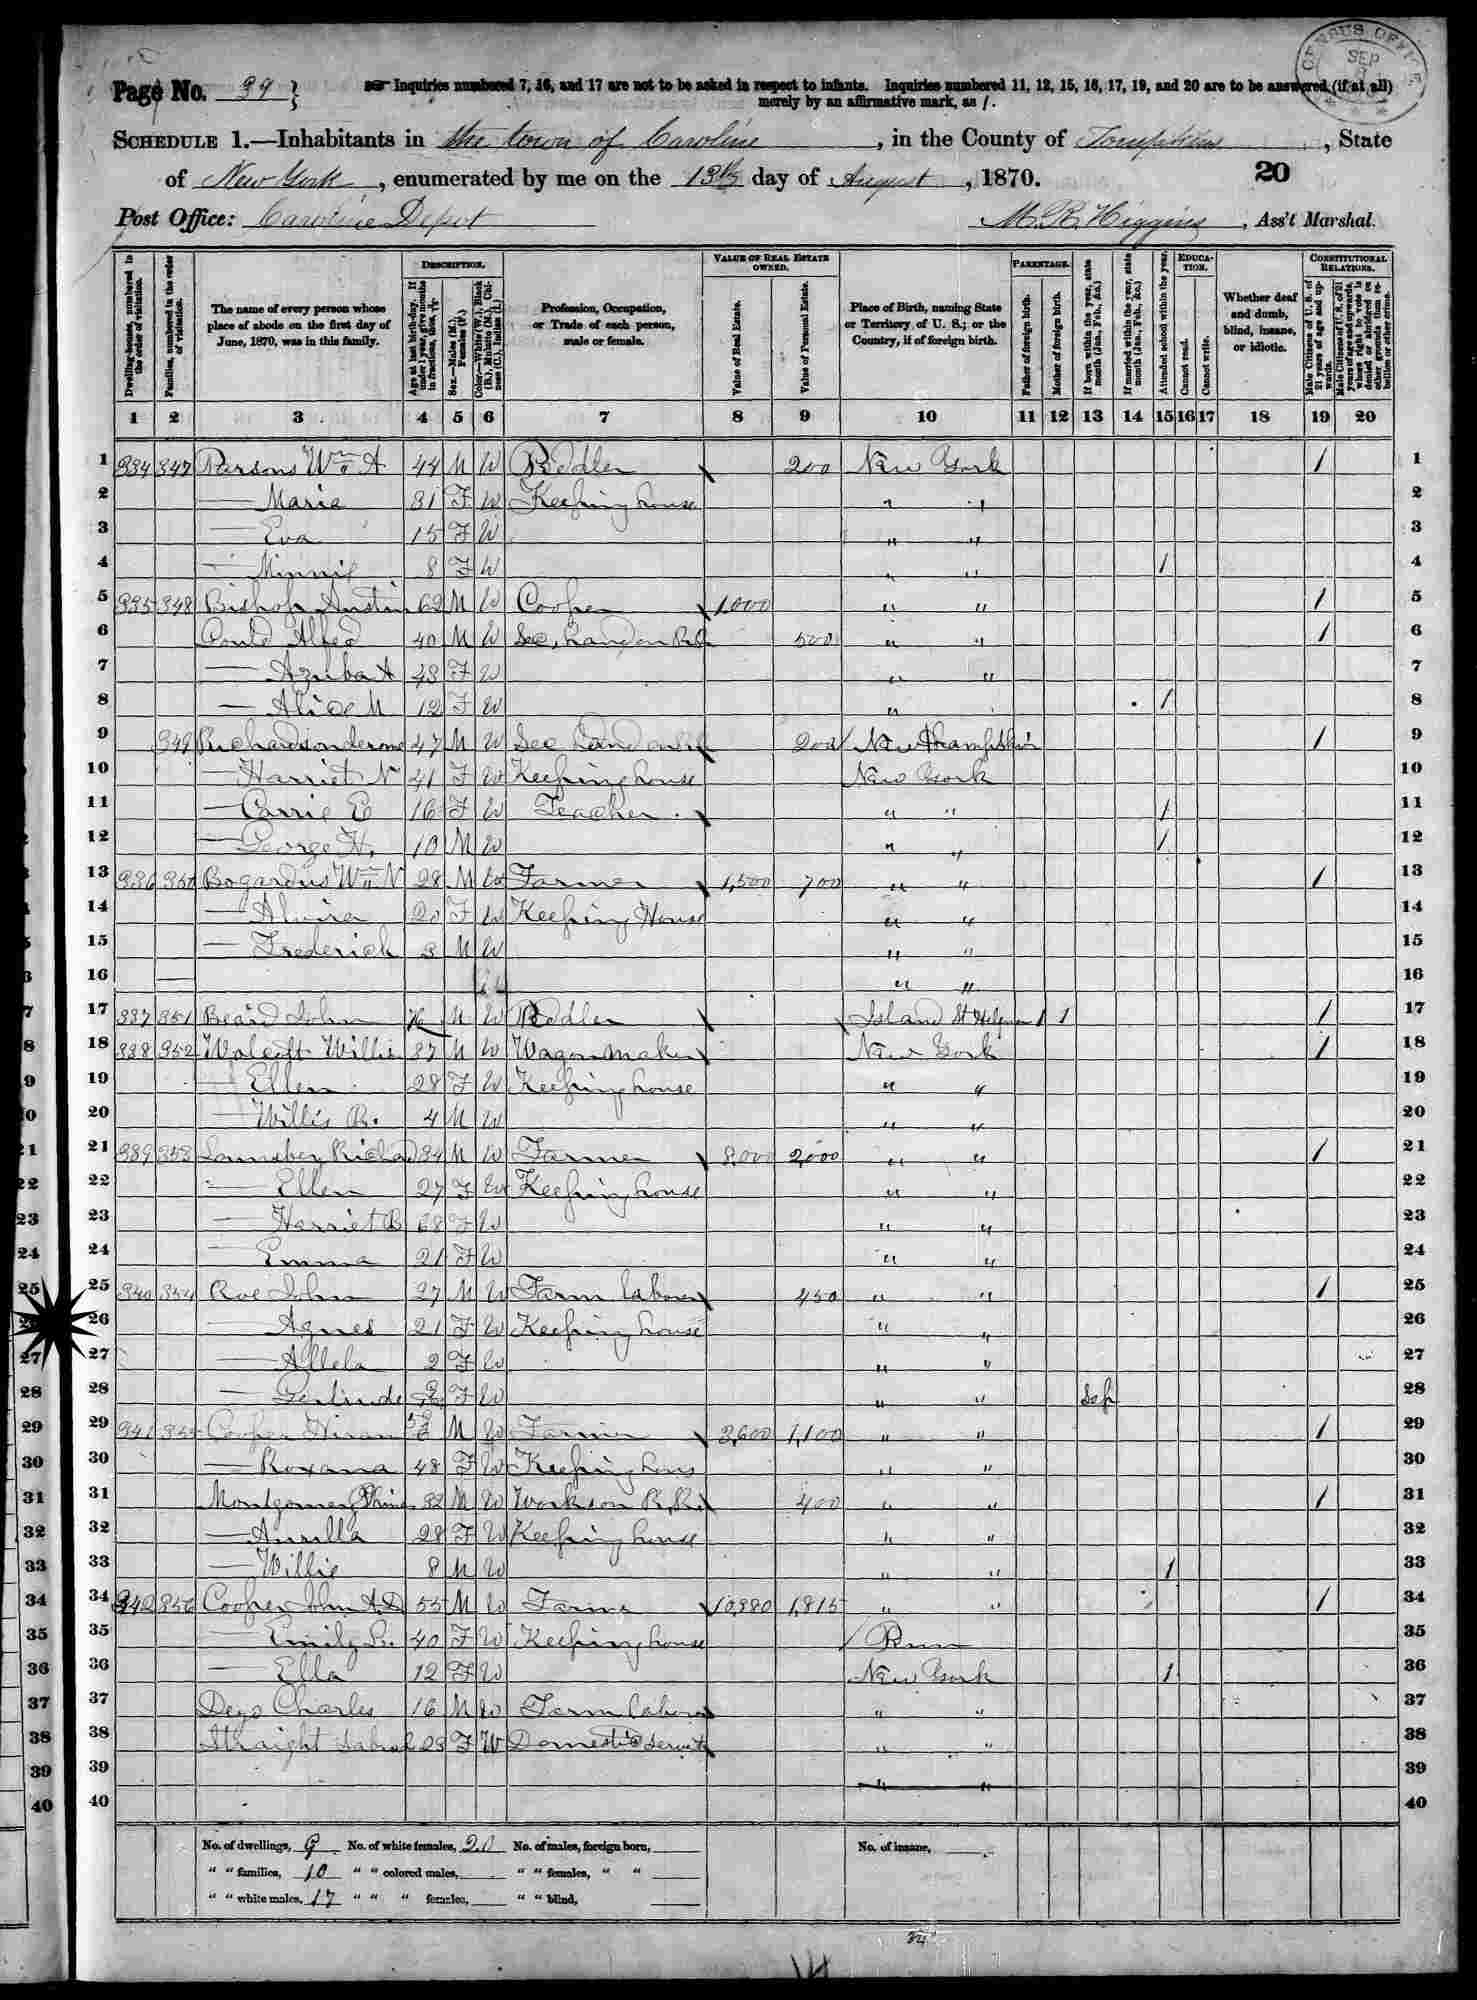 Page No. 39
Inquiries numbered 7, 16, and 17 are not to be asked in respect to infants. Inquiries numbered 11, 12, 15, 16, 17, 19, and 20 are to be answered (if at all)
merely by an affirmative mark, as /.
CENSUS OFFICE SEP
SCHEDULE 1.—Inhabitants in the town of Caroline, in the County of Tompkins, State
of New York, enumerated by me on the 13th day of August, 1870.
20
Post Office: Caroline Depot
M. R. Higgins, Ass't Marshal.
Dwelling-houses, numbered in the order of visitation.
Families, numbered in the order of visitation.
The name of every person whose place of abode on the first day of June, 1870, was in this family.
DESCRIPTION.
Age at last birth-day. If under 1 year, give months in fractions, thus,
Sex.—Males (M.), Females (F.)
Color.—White (W.), Black (B.), Mulatto (M.), Chinese (C.), Indian (I.)
Profession, Occupation, or Trade of each person, male or female.
VALUE OF REAL ESTATE OWNED.
Value of Real Estate.
Value of Personal Estate.
Place of Birth, naming State or Territory of U. S.; or the Country, if of foreign birth.
PARENTAGE.
Father of foreign birth.
Mother of foreign birth.
If born within the year, state month (Jan., Feb., &c.)
If married within the year, state month (Jan., Feb., &c.)
Attended school within the year.
EDUCATION.
Cannot read.
Cannot write.
Whether deaf and dumb, blind, insane, or idiotic.
CONSTITUTIONAL RELATIONS.
Male Citizens of U. S. of 21 years of age and upwards.
Male Citizens of U. S. of 21 years of age and upwards, whose right to vote is denied or abridged on other grounds than rebellion or other crime.
1 2 3 4 5 6 7 8 9 10 11 12 13 14 15 16 17 18 19 20
1 334 347 Parsons Wm A 44 M W Pedler 200 New York / 1
2 — Maria 31 F W Keeping house " " 2
3 — Eva 15 F W " " 3
4 — Minnie 8 F W " " / 4
5 335 348 Bishop Austin 62 M W Cooper 1,000 " " / 5
6 Gould Alfred 40 M W Sec, hand on 500 " " / 6
7 — Azuba A 43 F W " " 7
8 — Alice M 12 F W " / 8
9 349 Richardson Jerome 47 M W Sec hand on 200 New Hampshire / 9
10 — Harriet N 41 F W Keeping house New York 10
11 — Carrie E 16 F W Teacher " " / 11
12 — George H, 10 M W " " / 12
13 336 350 Bogardus Wm N 28 M W Farmer 1,500 700 " " / 13
14 — Alvira 20 F W Keeping House " " 14
15 — Frederick 3 M W " " 15
16 — " " 16
17 337 351 Beard John M W Pedler Island St / 1 / 17
18 338 352 Walcott Willis 37 M W Wagon maker New York / 18
19 — Ellen 28 F W Keeping house " " 19
20 — Willis R. 4 M W " " 20
21 339 353 Lounsbery Richard 34 M W Farmer 8,000 2,000 " " / 21
22 — Ellen 27 F W Keeping house " " 22
23 — Harriet B 68 F W " " 23
24 — Emma 21 F W " " 24
25 340 354 Roe John 27 M W Farm laborer 450 " " / 25
26 — Agnes 21 F W Keeping house " " 26
27 — Allela 2 F W " " 27
28 — Gertrude F W " " Sep 28
29 341 355 Cooper Hiram M W Farmer 3,600 1,100 " " / 29
30 — Roxana 48 F W Keeping hous " " 30
31 Montgomery 32 M W Works on R.R. 400 " " / 31
32 — Aurilla 28 F W Keeping house " " 32
33 — Willie 8 M W " " 1 33
34 342 356 Cooper John A. D 55 M W Farmer 10,980 1,815 " " / 34
35 — Emily L. 40 F W Keeping house Penn 35
36 — Ella 12 F W New York 1 36
37 Deyo Charles 16 M W Farm laborer " " 37
38 Straight 23 F W Domestic Servt " " 38
39 " " 39
40 40
No. of dwellings, 9 No. of white females, 20 No. of males, foreign born, No. of insane,
" " families, 10 " " colored males, " " females, " "
" " white males, 17 " " " females, " " blind,